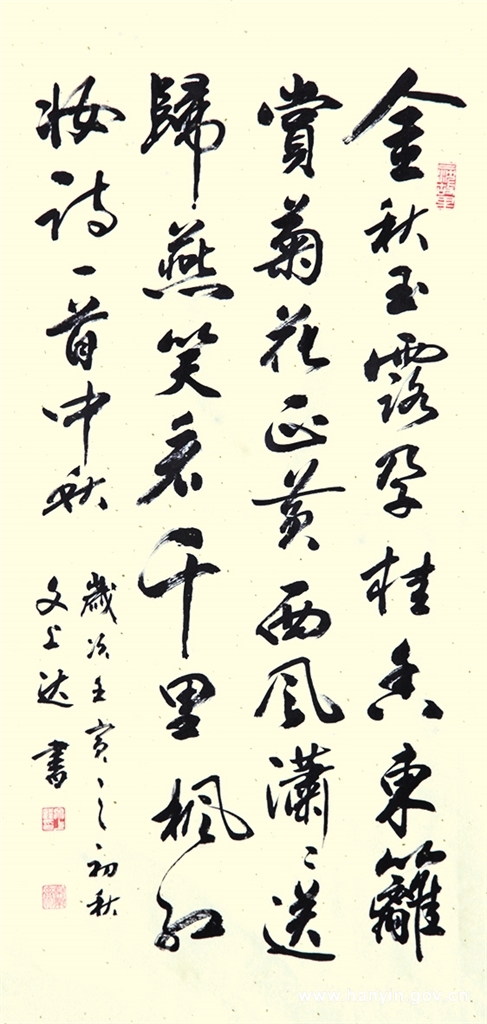 金秋玉露孕桂香東籬
賞菊花正黄西风瀟々送
歸燕笑看千里楓红
妆诗一首中秋
歲次壬寅之初秋
文上达書
www.hanyin.gov.cn